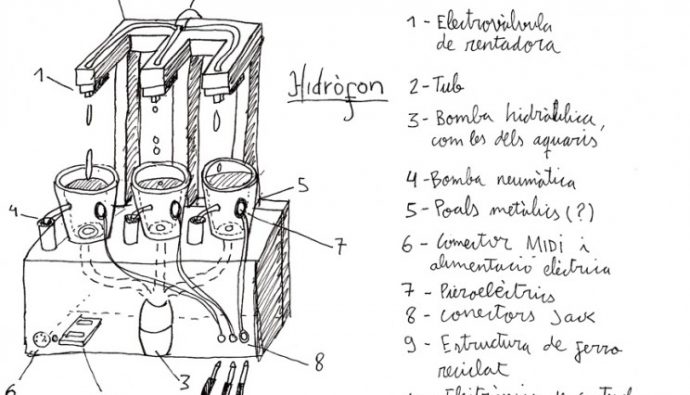 Hidròfon
1 - Electrovàlvula
de rentadora
2 - Tub
3 - Bomba hidràulica,
com les dels aquaris
4 - Bomba neumàtica
5 - Poals metàlics (?)
6 - Conector MIDI i
alimentació elèctrica
7 - Piezoelèctrics
8 - Conectors Jack
9 - Estructura de ferro
reciclat
1
4
5
7
6
3
8